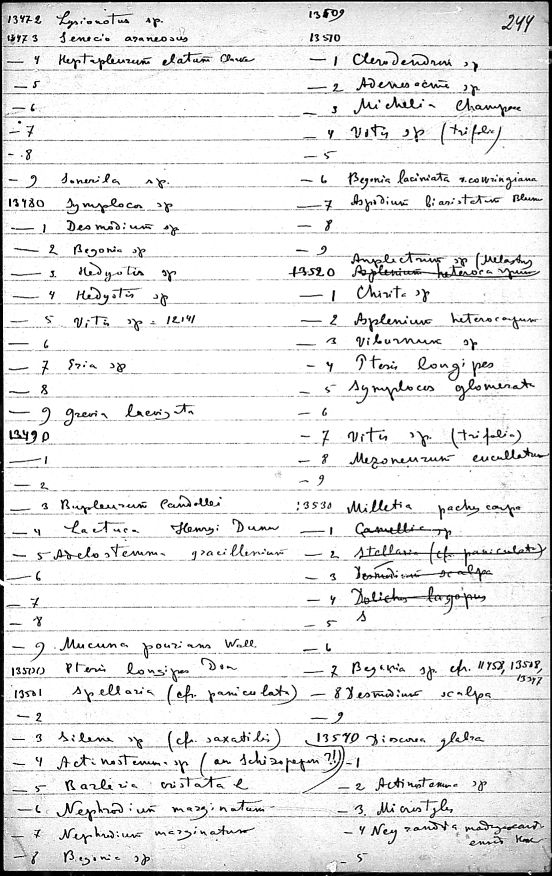 244
13472 Lysionotus sp.
13473 Senecio araneosus
— 4 Heptapleurum elatum Clarke
— 5
— 6
— 7
— 8
— 9 Sonerila sp.
13480 Symplocos sp
— 1 Desmodium sp
— 2 Begonia sp
— 3 Hedyotis sp
— 4 Hedyotis sp
— 5 Vitis sp = 12141
— 6
— 7 Eria sp
— 8
— 9 grevia laevigata
13490
— 1
— 2
— 3 Bupleurum Candollei
— 4 Lactuca Henryi Dunn
— 5 Adelostemma gracillenium
— 6
— 7
— 8
— 9 Mucuna pourians Wall
13500 Pteris longipes Don
13501 Spellaria (cfr. paniculata)
— 2
— 3 Silene sp (cfr. saxatilis)
— 4 Actinostemma sp (an Schizopepon ?!)
— 5 Barleria cristata L
— 6 Nephrodium marginatum
— 7 Nephrodium marginatum
— 8 Begonia sp
13509
13510
— 1 Clerodendron sp
— 2 Adenosacme sp
— 3 Michelia Champaca
— 4 Vitis sp (trifolia)
— 5
— 6 Begonia laciniata v. cowringiana
— 7 Aspidium biaristatum Blum
— 8
— 9
Anplectrum sp (Melast)
13520 Asplenium heterocarpum
— 1 Chirita sp
— 2 Asplenium heterocarpum
— 3 Viburnum sp
— 4 Pteris longipes
— 5 Symplocos glomerata
— 6
— 7 Vitis sp. (trifolia)
— 8 Mezoneurum cucullatum
— 9
13530 Milletia pachycarpa
— 1 Camellia sp
— 2 Stellaria (cfr. paniculata)
— 3 Desmodium scalpa
— 4 Dolichos lagopus
— 5 S
— 6
— 7 Begonia sp. cfr. 11458, 13508,
— 8 Desmodium scalpa
— 9
13540 Discorea glabra
— 1
— 2 Actinostemma sp
— 3 Microstylis
— 4 Neyrandia madagascariensis Hook
— 5